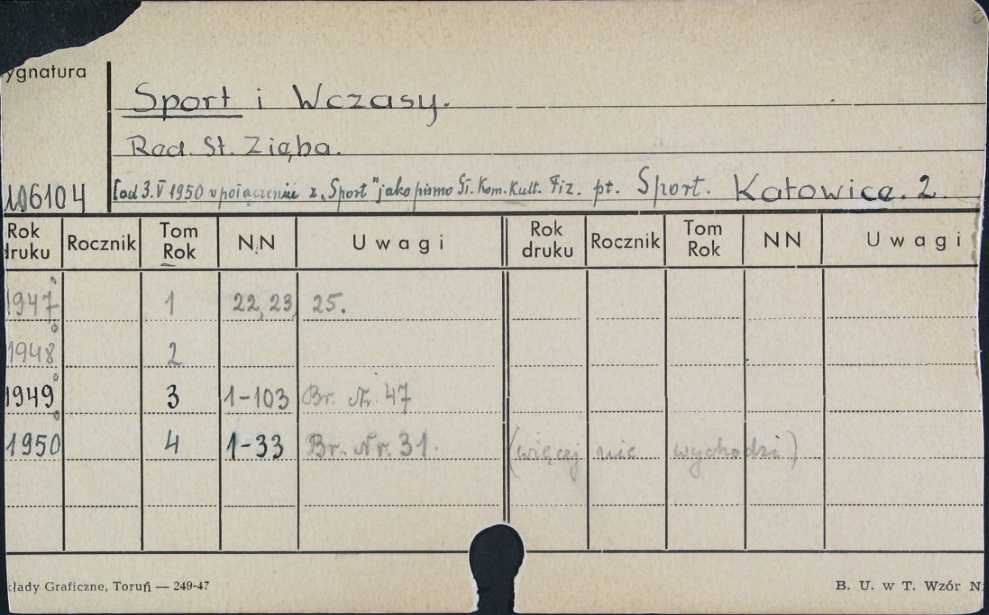 ygnatura
Sport i Wczasy.
Red. St. Zięba.
106104
[od 3.V 1950 w połączeniu z "Sport" jako pismo Śl. Kom. Kult. Fiz. pt. Sport. Katowice. 2.
Rok druku Rocznik Tom Rok NN Uwagi Rok druku Rocznik Tom Rok NN Uwagi
1947 1 22, 23, 25.
1948 2
1949 3 1-103 Br. Nr. 47
1950 4 1-33 Br. Nr. 31. (więcej nie wychodzi)
kłady Graficzne, Toruń — 249-47 B. U. w T. Wzór N